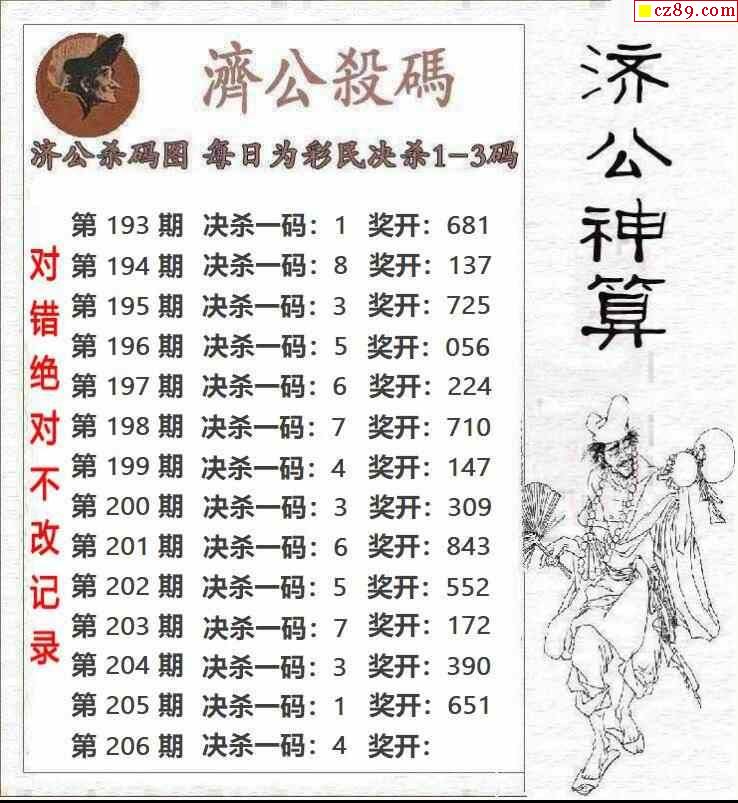 cz89.com
濟公殺碼
济公杀码图 每日为彩民决杀1-3码
第 193 期 决杀一码：1 奖开：681
第 194 期 决杀一码：8 奖开：137
第 195 期 决杀一码：3 奖开：725
第 196 期 决杀一码：5 奖开：056
第 197 期 决杀一码：6 奖开：224
第 198 期 决杀一码：7 奖开：710
第 199 期 决杀一码：4 奖开：147
第 200 期 决杀一码：3 奖开：309
第 201 期 决杀一码：6 奖开：843
第 202 期 决杀一码：5 奖开：552
第 203 期 决杀一码：7 奖开：172
第 204 期 决杀一码：3 奖开：390
第 205 期 决杀一码：1 奖开：651
第 206 期 决杀一码：4 奖开：
对错绝对不改记录
济公神算